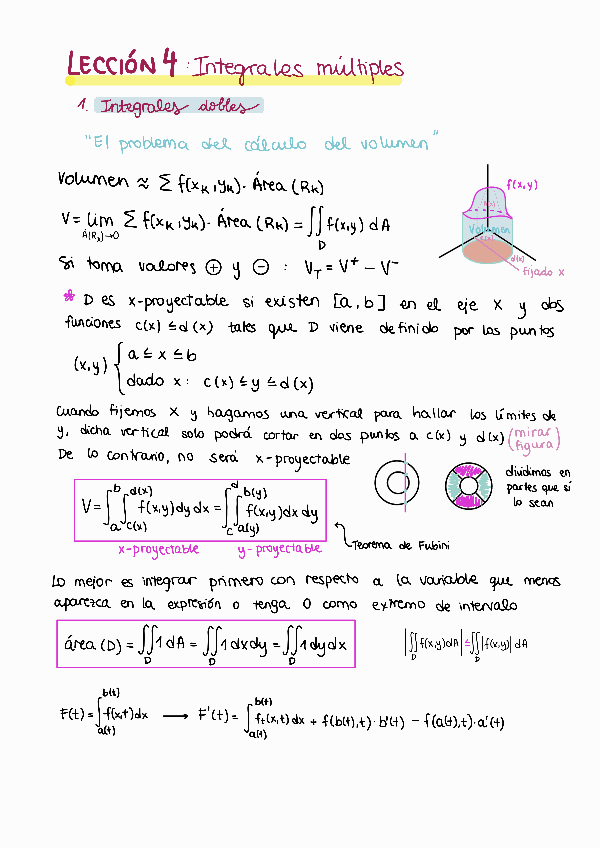 LECCIÓN 4: Integrales múltiples
1. Integrales dobles
"El problema del cálculo del volumen"
Volumen ≈ ∑ f(xₖ,yₖ)· Área (Rₖ)
V = lim_{A(Rₖ)→0} ∑ f(xₖ,yₖ)· Área (Rₖ) = ∬_D f(x,y) dA
f(x,y)
Volumen
d(x)
fijado x
Si toma valores ⊕ y ⊖ : V_T = V⁺ − V⁻
* D es x-proyectable si existen [a,b] en el eje x y dos
funciones c(x) ≤ d(x) tales que D viene definido por los puntos
(x,y) { a ≤ x ≤ b
dado x: c(x) ≤ y ≤ d(x)
Cuando fijemos x y hagamos una vertical para hallar los límites de
y, dicha vertical solo podrá cortar en dos puntos a c(x) y d(x) (mirar figura)
De lo contrario, no será x-proyectable
dividimos en
partes que sí
lo sean
V = ∫_a^b ∫_{c(x)}^{d(x)} f(x,y) dy dx = ∫_c^d ∫_{a(y)}^{b(y)} f(x,y) dx dy
x-proyectable y-proyectable
Teorema de Fubini
Lo mejor es integrar primero con respecto a la variable que menos
aparezca en la expresión o tenga 0 como extremo de intervalo
área (D) = ∬_D 1 dA = ∬_D 1 dx dy = ∬_D 1 dy dx
|∬_D f(x,y) dA| ≤ ∬_D |f(x,y)| dA
F(t) = ∫_{a(t)}^{b(t)} f(x,t) dx → F'(t) = ∫_{a(t)}^{b(t)} fₜ(x,t) dx + f(b(t),t)· b'(t) − f(a(t),t)· a'(t)